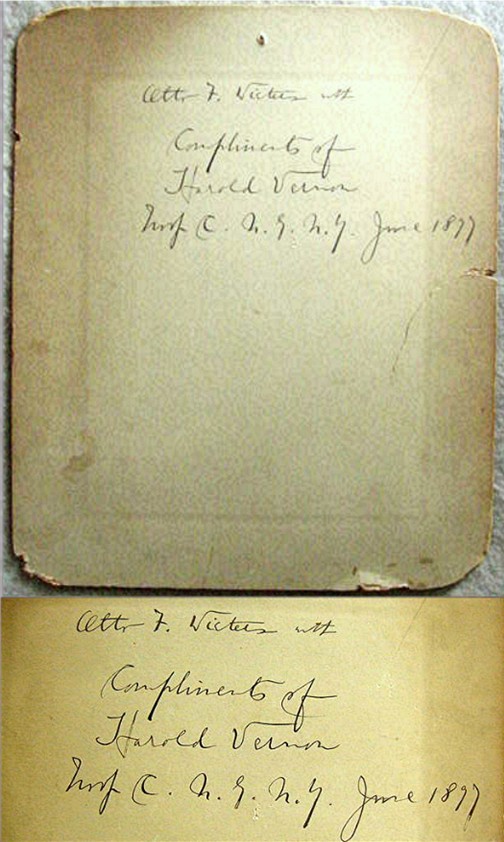 Otto F. Wieters with
Compliments of
Harold Vernon
Troop C. N. G. N. Y. June 1897
Otto F. Wieters with
Compliments of
Harold Vernon
Troop C. N. G. N. Y. June 1897